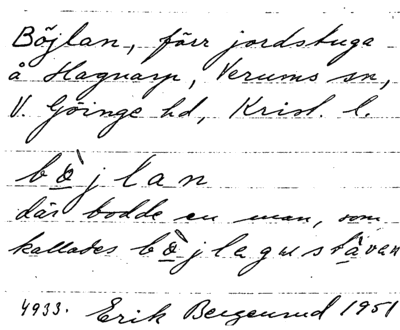 Böjlan, förr jordstuga
å Hagnarp, Verums sn,
V. Göinge hd, Krist. l.
bö̀jlan
där bodde en man, som
kallades bö̀jlagustāven
4933. Erik Bergenrud 1951